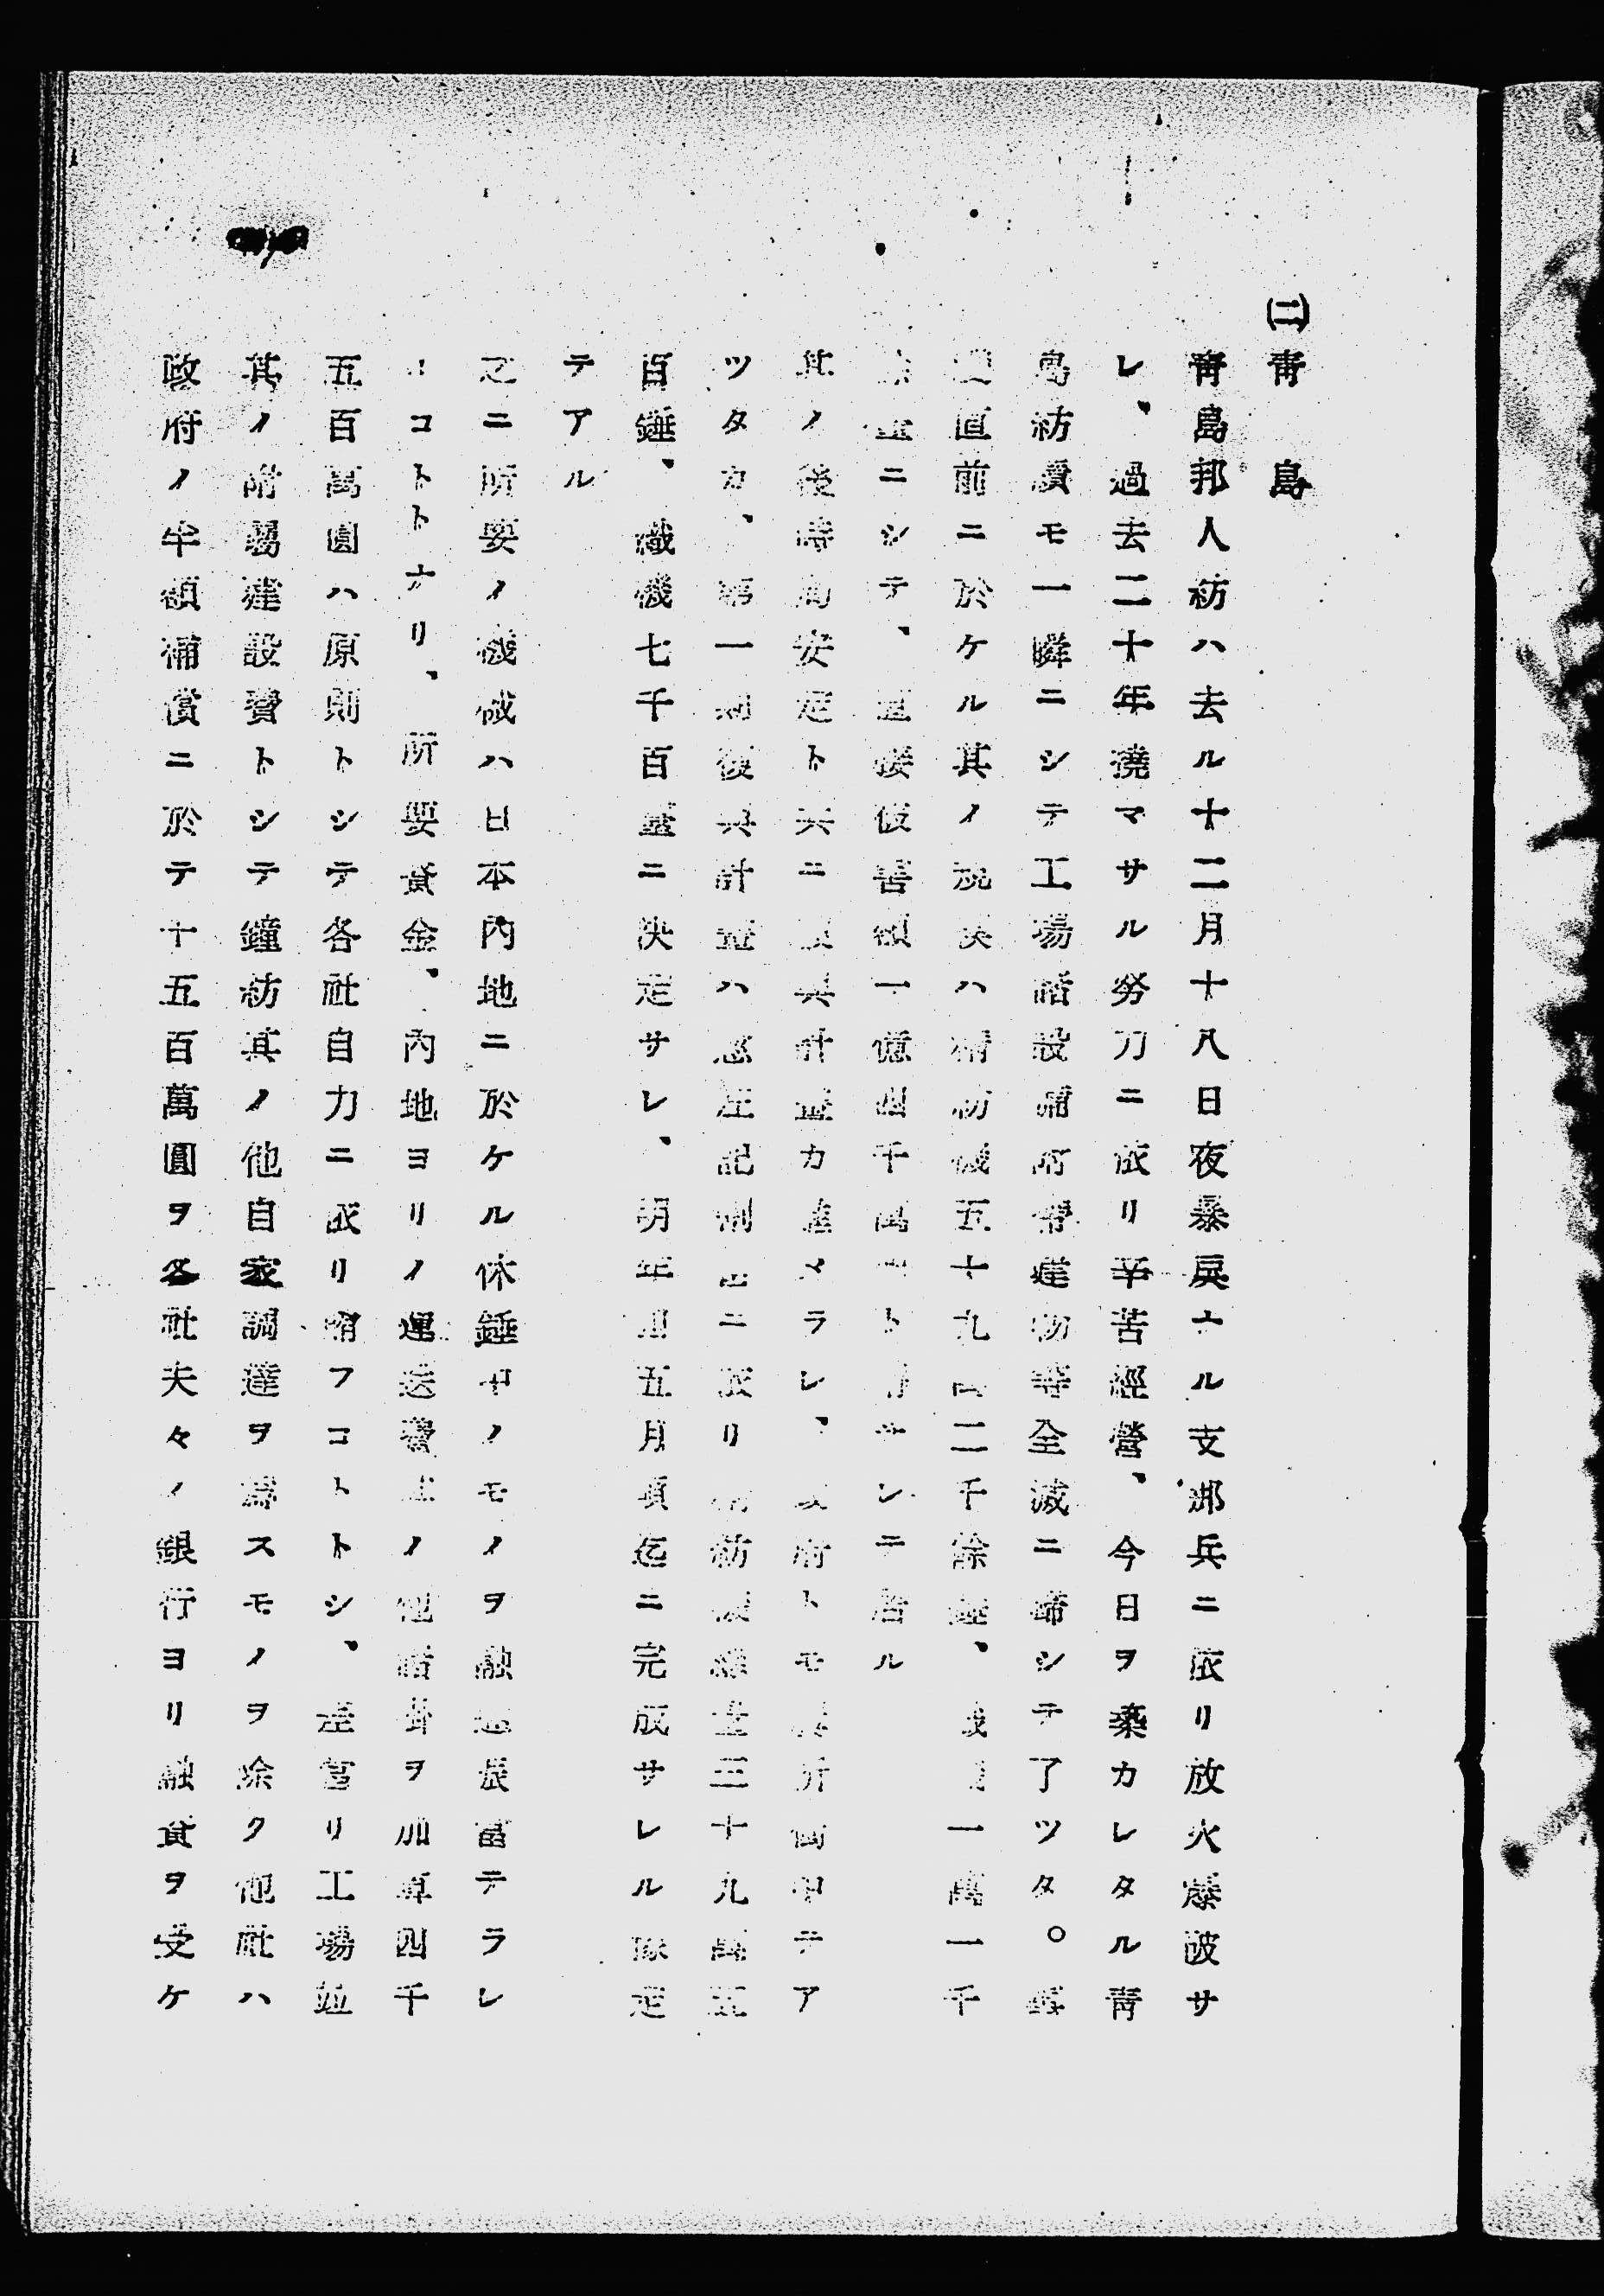 (二)青島
青島邦人紡ハ去ル十二月十八日夜暴戻ナル支那兵ニ依リ放火爆破サ
レ、過去二十年撓マサル努力ニ依リ辛苦經營、今日ヲ築カレタル青
島紡績モ一瞬ニシテ工場諸設備附帶建物等全滅ニ歸シテ了ツタ。
直前ニ於ケル其ノ規模ハ精紡機五十九萬二千餘錘、織機一萬一千
ニシテ、直接被害額一億四千萬ト サレテ居ル
其ノ後時局安定ト共ニ復興計畫カ進メラレ、政府トモ折衝中テア
ツタカ、第一期復興計畫ハ左記割ニ依リ精紡機錘三十九萬五
百錘、織機七千百臺ニ決定サレ、明年五月頃迄ニ完成サレル豫定
テアル
之ニ所要ノ機械ハ日本內地ニ於ケル休錘中ノモノヲ融通振當テラレ
コトトナリ、所要資金、內地ヨリノ運送費其ノ他諸掛ヲ加算四千
五百萬圓ハ原則トシテ各社自力ニ依リ賄フコトトシ、差當リ工場竝
其ノ附屬建設費トシテ鐘紡其ノ他自家調達ヲ爲スモノヲ除ク他社ハ
政府ノ半額補償ニ於テ十五百萬圓ヲ各社夫々ノ銀行ヨリ融資ヲ受ケ